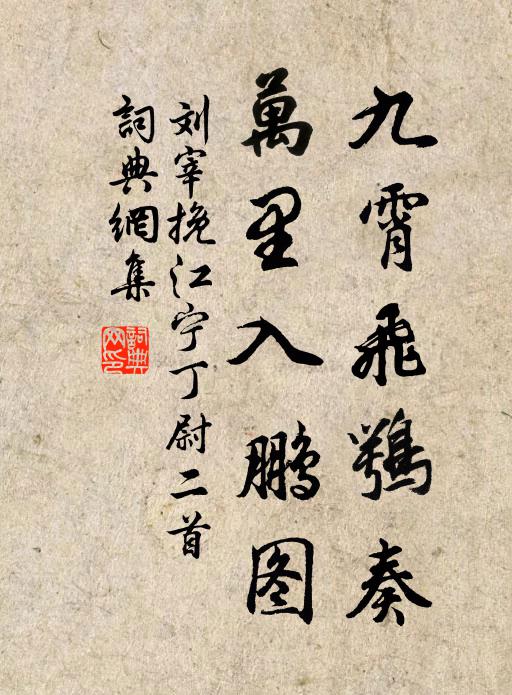 九霄飛鶚奏
萬里入鵬图
刘宰挽江宁丁尉二首
詞典網集
詞典网印